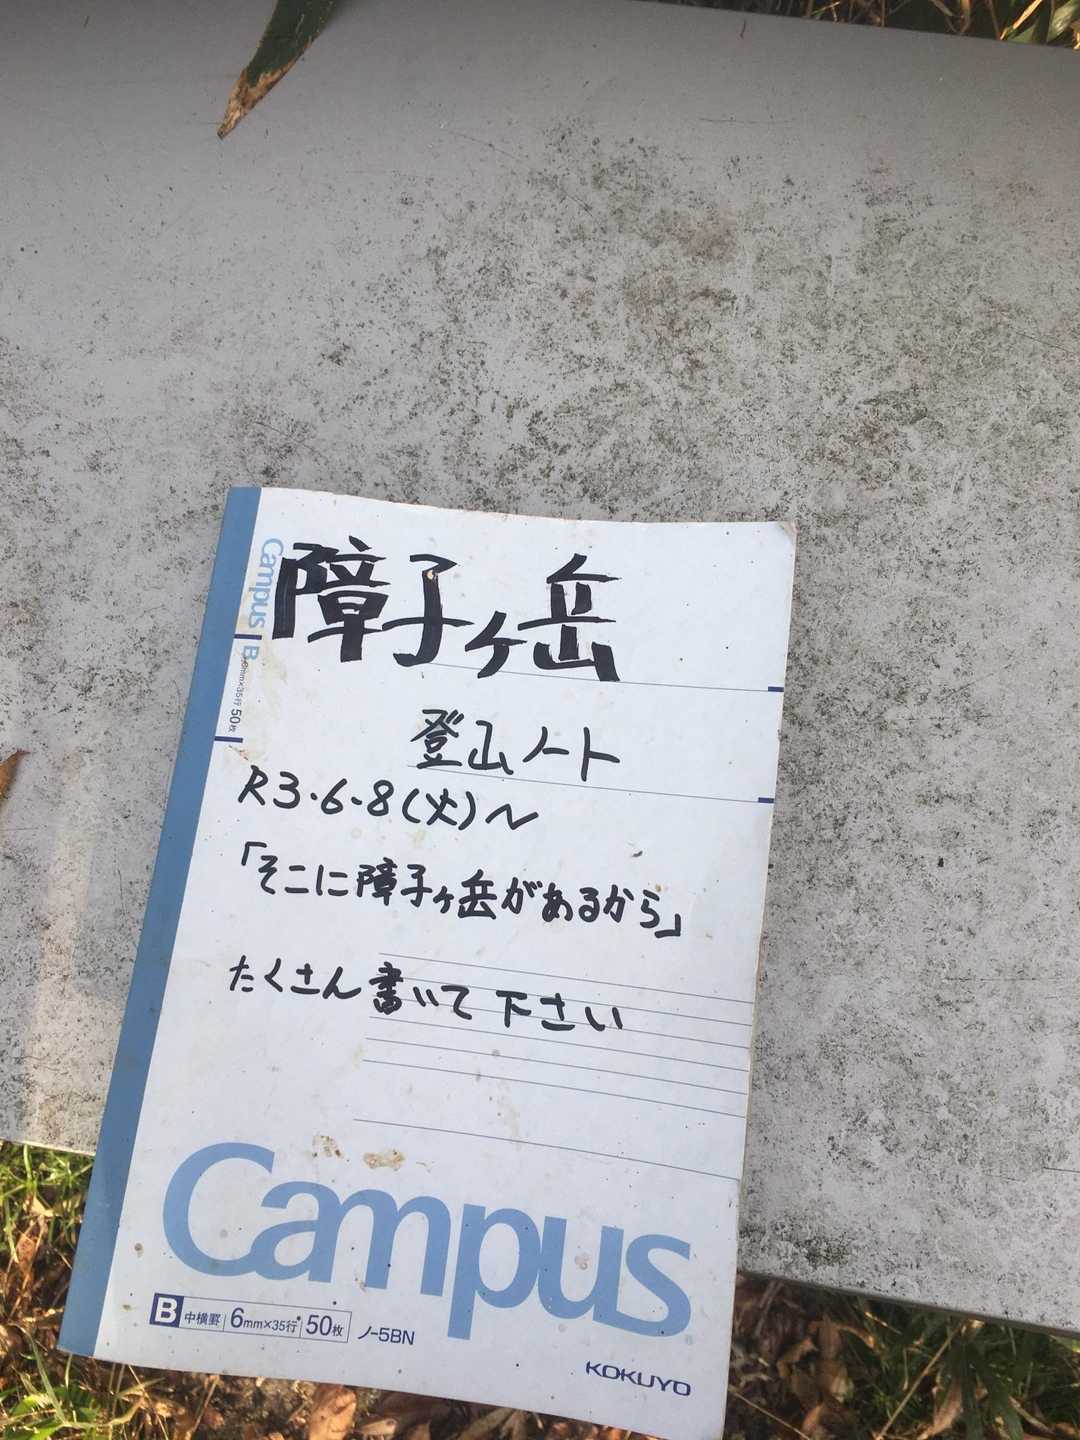 障子ヶ岳
登山ノート
R3・6・8(火)～
「そこに障子ヶ岳があるから」
たくさん書いて下さい
Campus
B 中横罫 6mm×35行 50枚 ノ-5BN
KOKUYO
Campus B 6mm×35行 50枚